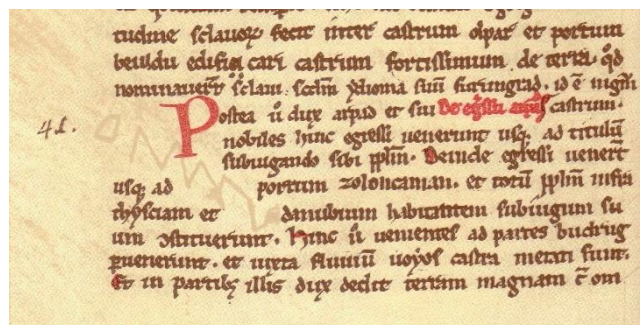 tudine sclauoꝝ fecit inter castrum olpar et portum
beuldu edifi cari castrum fortissimum de terra. qđ
nominauert sclaui scđm ydioma suū surungrad. id ē nigrū
Postea ū dux arpad et sui De egssu arpad castrum.
41.
nobiles hinc egressi uenerunt usqꝫ ad titulū
subiugando sibi ppłm. Deinde egressi uenert
usqꝫ ad portum zoloncaman. et totū ppłm infra
thysciam et danubium habitantem sub iugum su
um ꝯstituerunt. Hinc ū uenientes ad partes budrug
peruenerunt. et iuxta fluuiū uoyos castra metati sunt.
Et in partibꝫ illis dux dedit terram magnam c̄ om